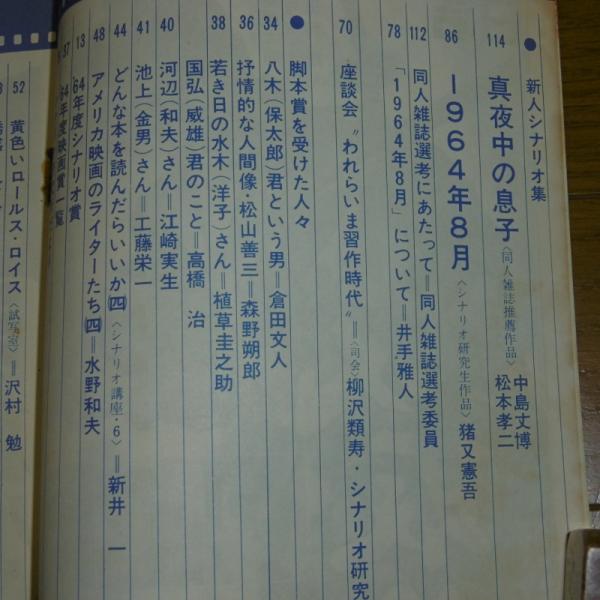 ●新人シナリオ集
114 真夜中の息子〈同人雑誌推薦作品〉中島丈博 松本孝二
86 1964年8月〈シナリオ研究生作品〉猪又憲吾
112 同人雑誌選考にあたって＝同人雑誌選考委員
78 「1964年8月」について＝井手雅人
70 座談会〝われらいま習作時代〟＝〈司会〉柳沢類寿・シナリオ研究
●脚本賞を受けた人々
34 八木（保太郎）君という男＝倉田文人
36 抒情的な人間像・松山善三＝森野朔郎
38 若き日の水木（洋子）さん＝植草圭之助
国弘（威雄）君のこと＝高橋 治
40 河辺（和夫）さん＝江崎実生
41 池上（金男）さん＝工藤栄一
44 どんな本を読んだらいいか㈣〈シナリオ講座・6〉＝新井 一
48 アメリカ映画のライターたち㈣＝水野和夫
13 '64年度シナリオ賞
37 '64年度映画賞一覧
52 黄色いロールス・ロイス〈試写室〉＝沢村 勉